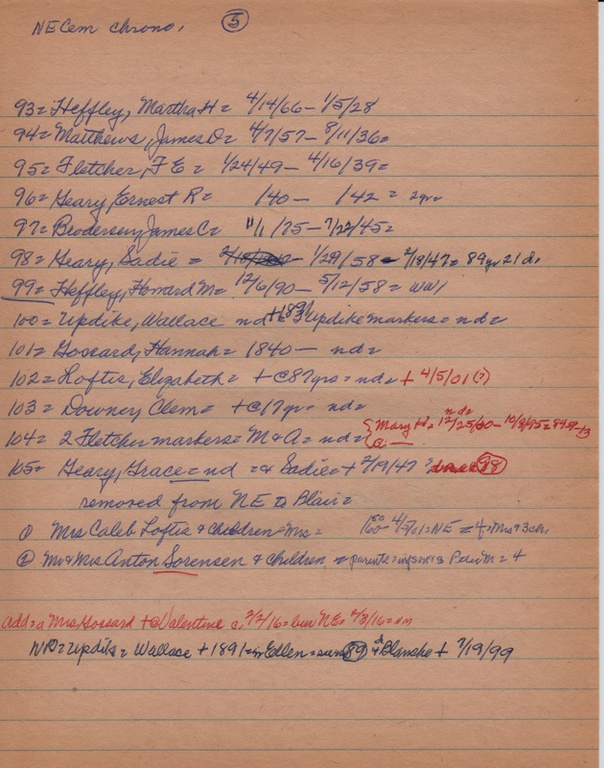 NE Cem chrono. 5
93= Heffley, Martha H= 4/14/66 - 1/5/28
94= Matthews, James D= 4/7/57 - 8/11/36=
95= Fletcher, F E= 1/24/49 - 4/16/39=
96= Geary, Ernest R= /40 - /42 = 2yr=
97= Brodersen, James C= 11/1/75 - 7/27/45=
98= Geary, Sadie = 1/29/58 - 2/19/47= 89yr 21 da
99= Heffley, Howard M= 12/6/90 - 5/12/58= WWI
100= Updike, Wallace nd +1891 = 3 Updike markers= nd=
101= Gossard, Hannah= 1840 - nd=
102= Loftis, Elizabeth= +C87yrs= nd= + 4/5/01 (?)
103= Downey, Clem= +C17yr= nd=
104= 2 Fletcher markers= M & A= nd= { Mary nd= 12/25/60 -
105= Geary, Grace= nd =& Sadie= + 2/19/47 ? 98
removed from NE to Blair=
① Mrs Caleb Loftis & children= Mrs= 4/5/01=NE = 4= Mrs & 3 ch.
② Mr & Mrs Anton Sorensen & children = parents= Peter M= 4
add= a Mrs Gossard +@Valentine c. 2/2/16= bur NE= 2/8/16=
NR= Updike= Wallace + 1891= Ellen= 89 & Blanche + 7/19/99